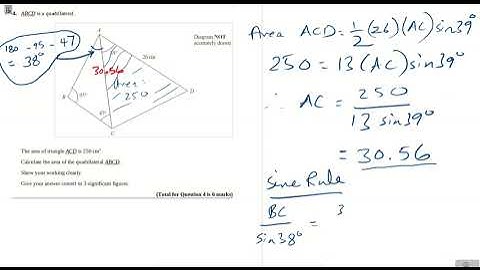 4. ABCD is a quadrilateral.
Diagram NOT
accurately drawn
180 - 95 - 47
= 38°
A
26 cm
30.56
Area =
250
B
D
C
The area of triangle ACD is 250 cm²
Calculate the area of the quadrilateral ABCD.
Show your working clearly.
Give your answer correct to 3 significant figures.
(Total for Question 4 is 6 marks)
Area ACD = 1/2 (26)(AC) sin39°
250 = 13 (AC) sin39°
∴ AC = 250
13 sin39°
= 30.56
Sine Rule
BC = 3
sin38°